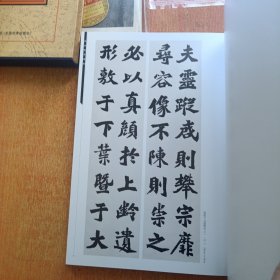 夫靈蹤感則攀宗靡
尋容像不陳則崇之
必以真顏於上齡遺
形敦于下葉暨于大